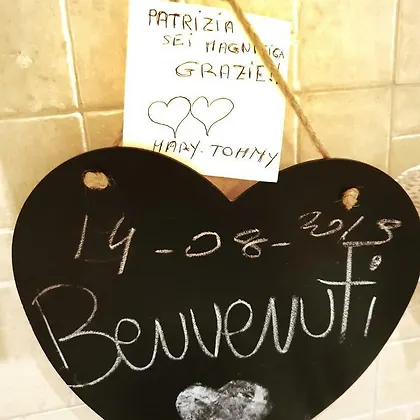 PATRIZIA
SEI MAGNIFICA
GRAZIE!!
MARY-TOMMY
14-08-2019
Benvenuti